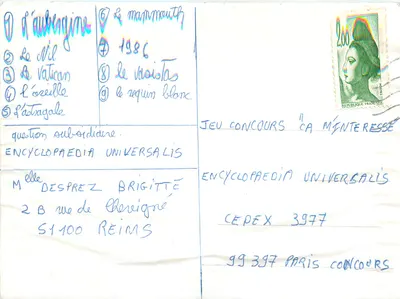 ① d'aubergine
② Le Nil
③ Le Vatican
④ l'oreille
⑤ L'astragale
⑥ Le mammouth
⑦ 1986
⑧ le
⑨ le requin blanc
question subsidiaire.
ENCYCLOPAEDIA UNIVERSALIS
Melle DESPREZ BRIGITTE
2 B rue de Chevigné
51100 REIMS
2,00
JEU CONCOURS "CA M'INTERESSE"
ENCYCLOPAEDIA UNIVERSALIS
CEDEX 3977
99 397 PARIS CONCOURS